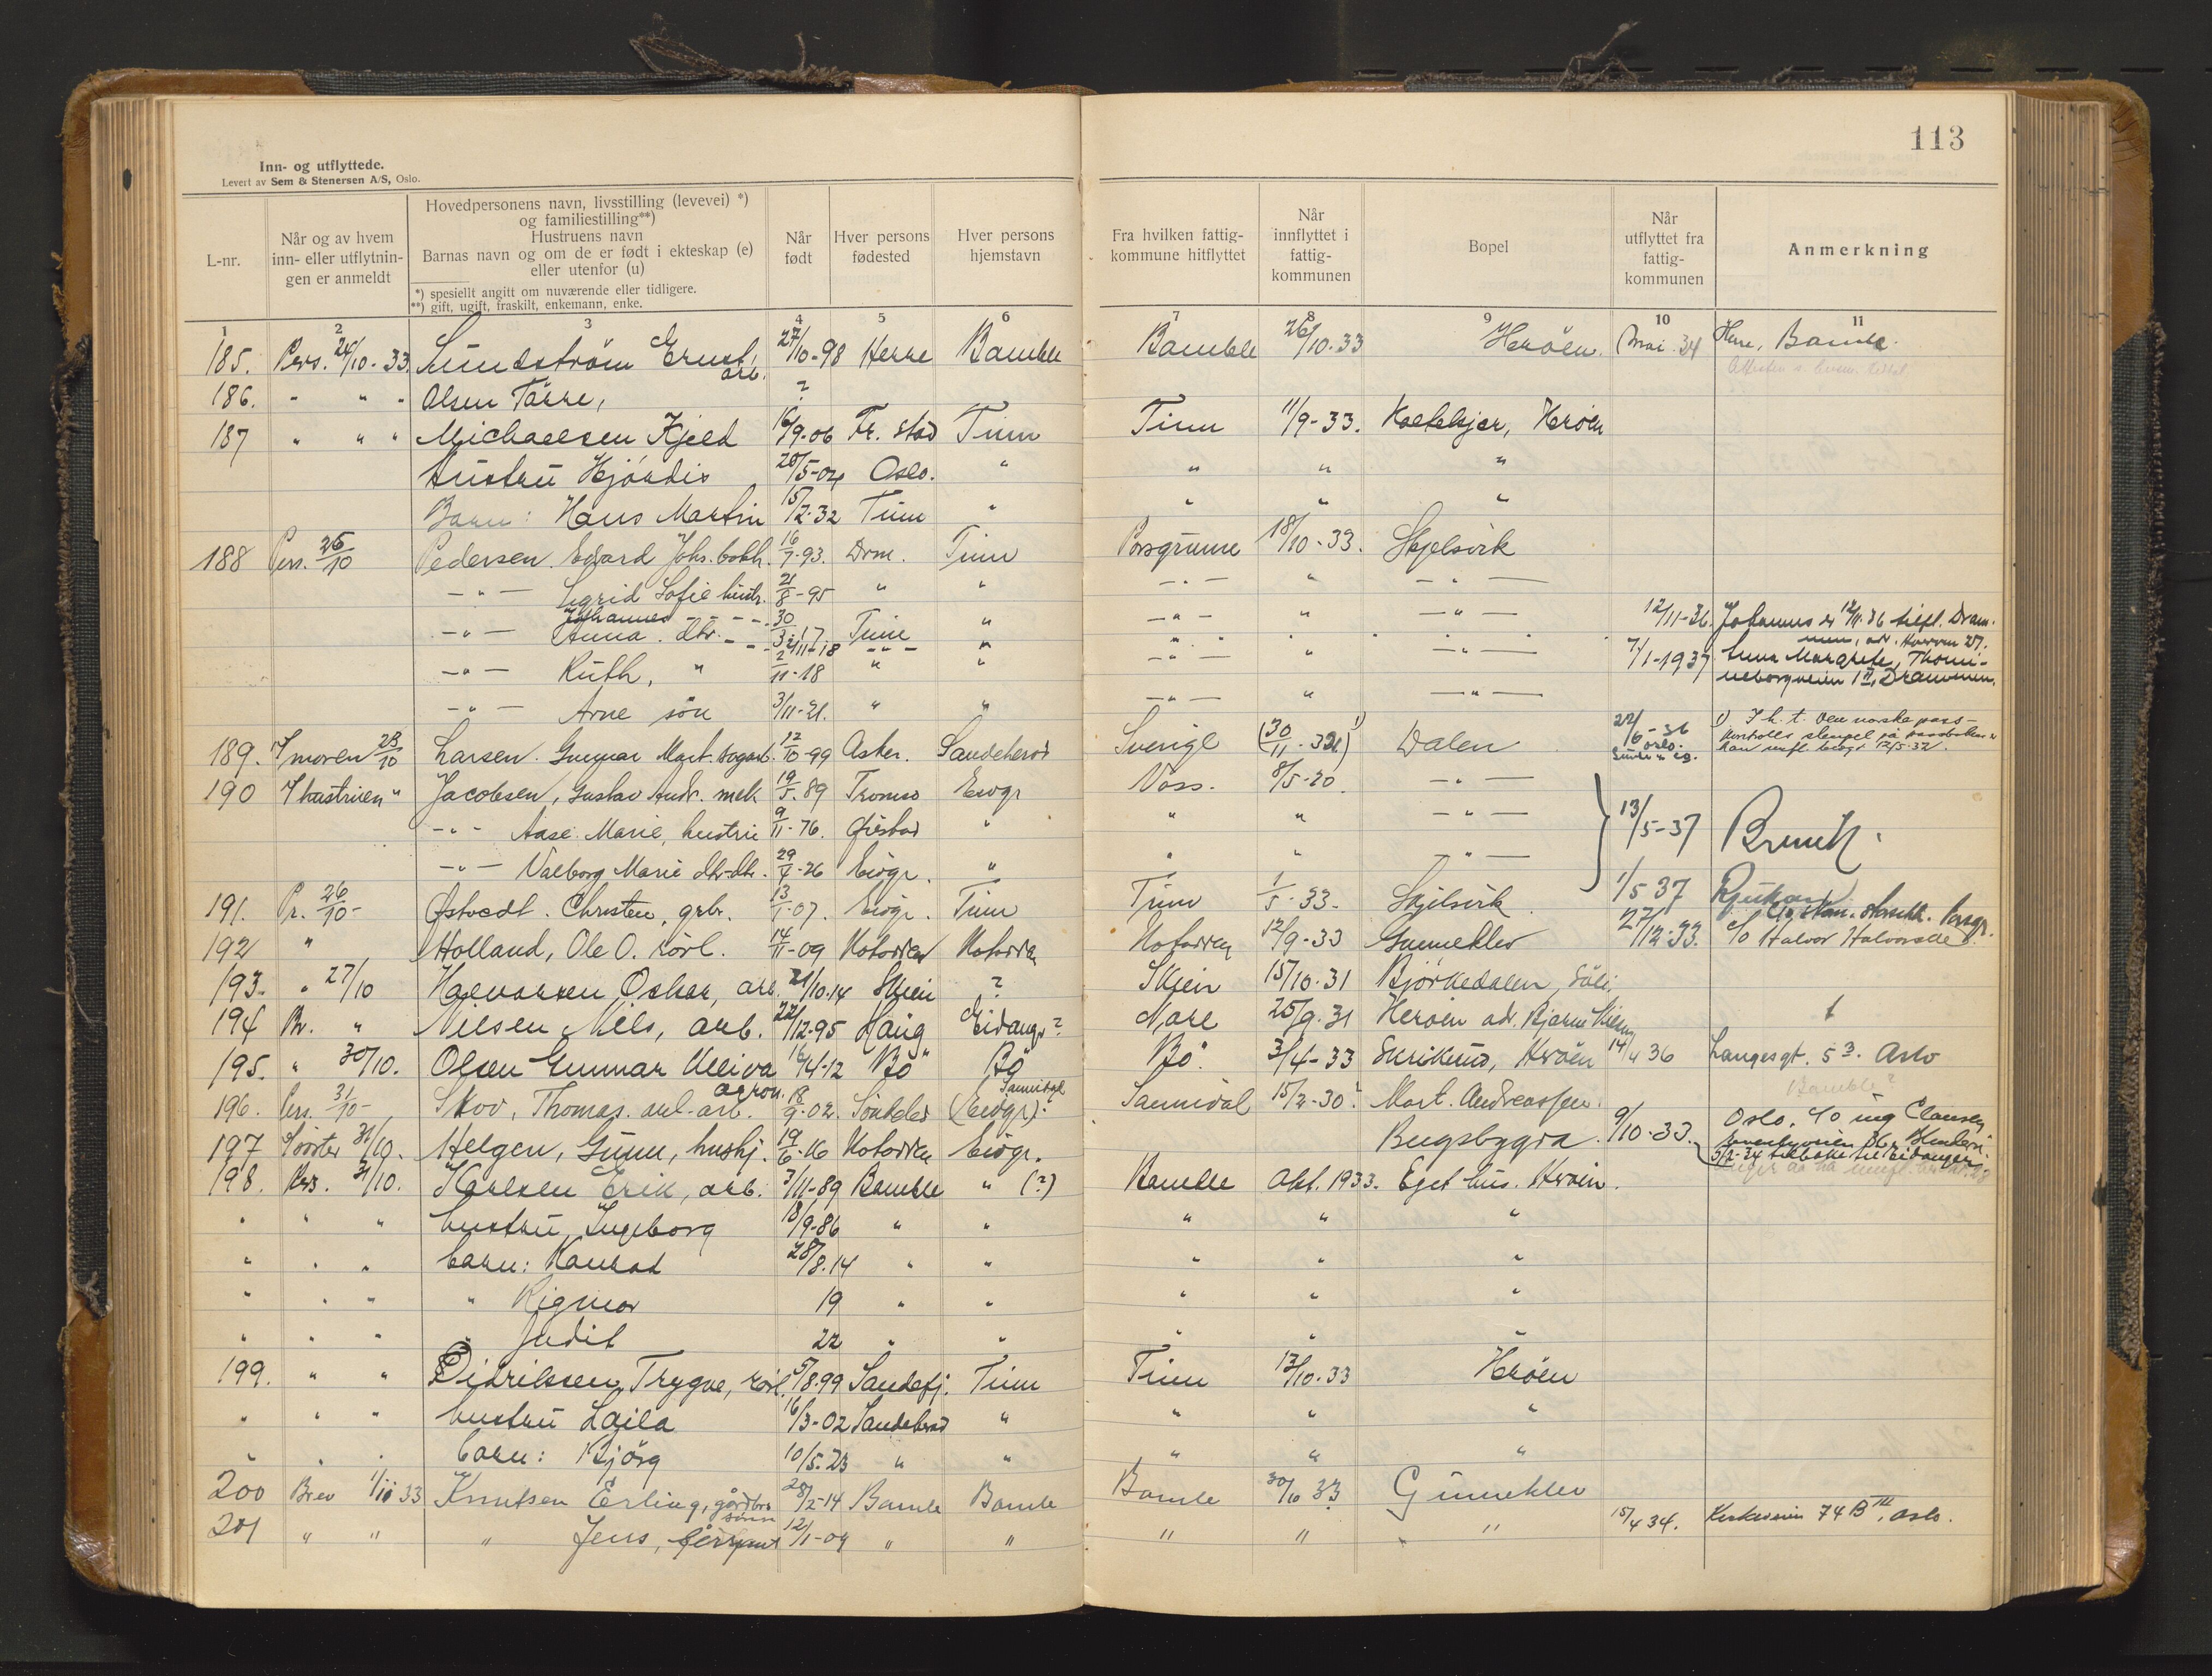 113
Inn- og utflyttede.
Levert av Sem & Stenersen A/S, Oslo.
L-nr.
Når og av hvem
inn- eller utflytnin-
gen er anmeldt
Hovedpersonens navn, livsstilling (levevei) *)
og familiestilling**)
Hustruens navn
Barnas navn og om de er født i ekteskap (e)
eller utenfor (u)
*) spesiellt angitt om nuværende eller tidligere.
**) gift, ugift, fraskilt, enkemann, enke.
Når
født
Hver persons
fødested
Hver persons
hjemstavn
Fra hvilken fattig-
kommune hitflyttet
Når
innflyttet i
fattig-
kommunen
Bopel
Når
utflyttet fra
fattig-
kommunen
Anmerkning
1 2 3 4 5 6 7 8 9 10 11
185. Pers. 26/10-33. Lundström Ernst, arb. 27/10-98 Herre Bamble Bamble 26/10.33 Herøen. Mai 34 Herre, Bamle.
186. " " " Olsen Tårre, ?
187 " " " Michaelsen Kjeld 16/9-06 Fr.stad Tinn Tinn 11/9-33. Herøen
Hustru Hjördis 20/5-04 Oslo. " " " "
Barn: Hans Martin 15/2-32 Tinn " " " "
188 Pers. 25/10 Pedersen. Edvard Johs. bokh. 16/7-93. Drm. Tinn Porsgrunn 18/10-33. Skjelsvik
—"— Sigrid Sofie hustr. 21/8-95 " " —"— " —"—
Johannes 12/11-36. Johannes
—"— Anna. dtr. 30/3-17 Tinn " —"— " —"—
—"— Ruth, " 2/11-18 " " —"— " —"— 7/1-1937 Anna Margrete, Drammen.
—"— Arne søn 3/11-21. " " —"— " —"—
189. Imoren 23/10 Larsen. Gunnar Mart. 12/10-99 Asker. Sandeherod Sverige (30/11-32) 1) Dalen 22/6-36 Oslo. 1) I h. t. den norske pass-
190 I hustruen " Jacobsen, Gustav Andr. mek 19/5.89 Tromsø Eidgr Voss. 8/5-20. —"—
—"— Aase Marie, hustru 9/11-76. " " " —"— 13/5-37
—"— Valborg Marie 29/4-26 Eidgr. " " " —"—
191. Pr. 26/10- Østvedt. Christen, grbr. 13/1-07. Eidgr. Tinn Tinn 1/5-33. Skjelsvik 1/5 37 Rjukan
192 " Holland, Ole O. rörl. 14/11-09 Notodden Notodden Notodden 12/9-33 Gunneklev 27/12-33. c/o Halvor Halvorsen
193. " 27/10 Halvorsen Oskar, arb. 21/10.14 Skien ? Skien 15/10.31 Björkedalen,
194 Br. " Nielsen Nils, arb. 22/12-95 Haug Eidangr? 25/9.31 Herøen
195. " 30/10. Olsen Gunnar 16/4-12 Bö Bö Bö. 3/4-33 Herøen 14/4 36 Langesgt. 5 3. Oslo
agron. Sannidal Bamble?
196. Pers. 31/10- Skov, Thomas. 18/9-02. Söndeled (Eidgr)? Sannidal 15/2-30? Mart. Andreassen.
197 31/10. Helgen, Gunn, hushj. 19/6-16 Notodden Eidgr. Bugsbygda. 9/10-33. Oslo. c/o ing Clausen
5/2-34 tilbake til Eidanger
198. Pers. 31/10. Karlsen Erik, arb. 7/11-89 Bamble " (?) Bamble Okt. 1933. Eget hus. Herøen.
" " " hustru Ingeborg 18/9-86 " " " " "
" " " barn: Konrad 28/8.14 " " " " "
" " " " Rigmor 19 " " " " "
" " " " Judit 22 " " " " "
199. " " Didriksen, Trygve, rörl. 5/8.99 Sandefj. Tinn Tinn 13/10.33 Herøen
" " " hustru Laila 16/3-02 Sandeherad " " " "
" " " barn: Bjørg 10/5.23 " " " " "
200 Brev 1/11 33 Knutsen Erling, gårdbr. sönn 28/2-14 Bamle Bamle Bamle 30/10 33 Gunneklev
201 " " " Jens, 12/1-09 " " " " " 15/4 34. Kirkeveien 74 B III, Oslo.